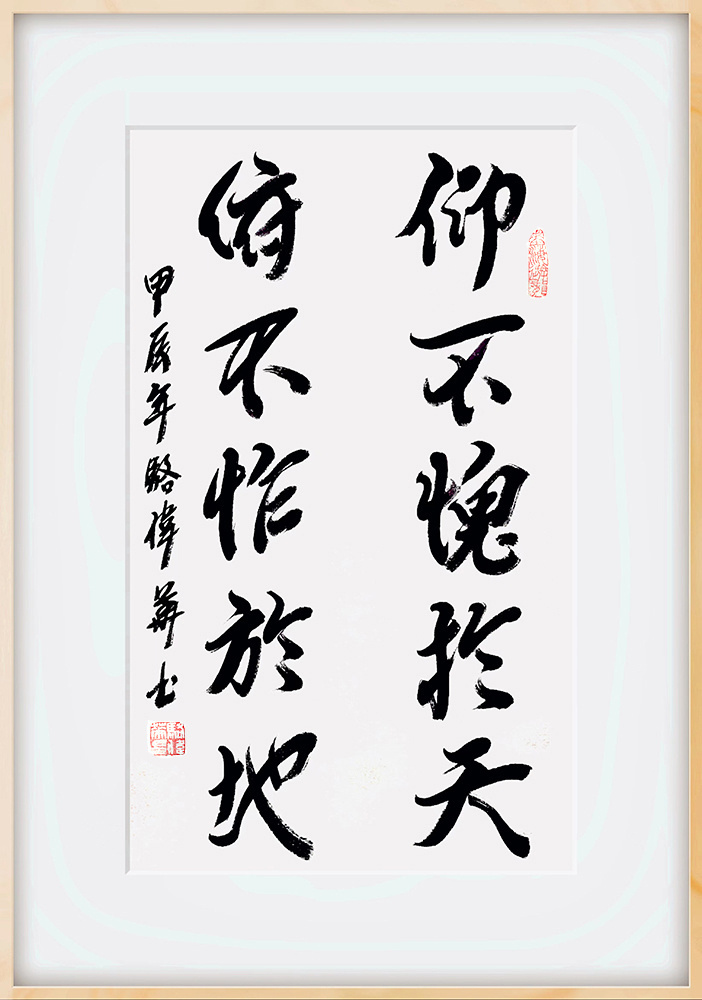 仰不愧於天
俯不怍於地
甲辰年駱偉華书